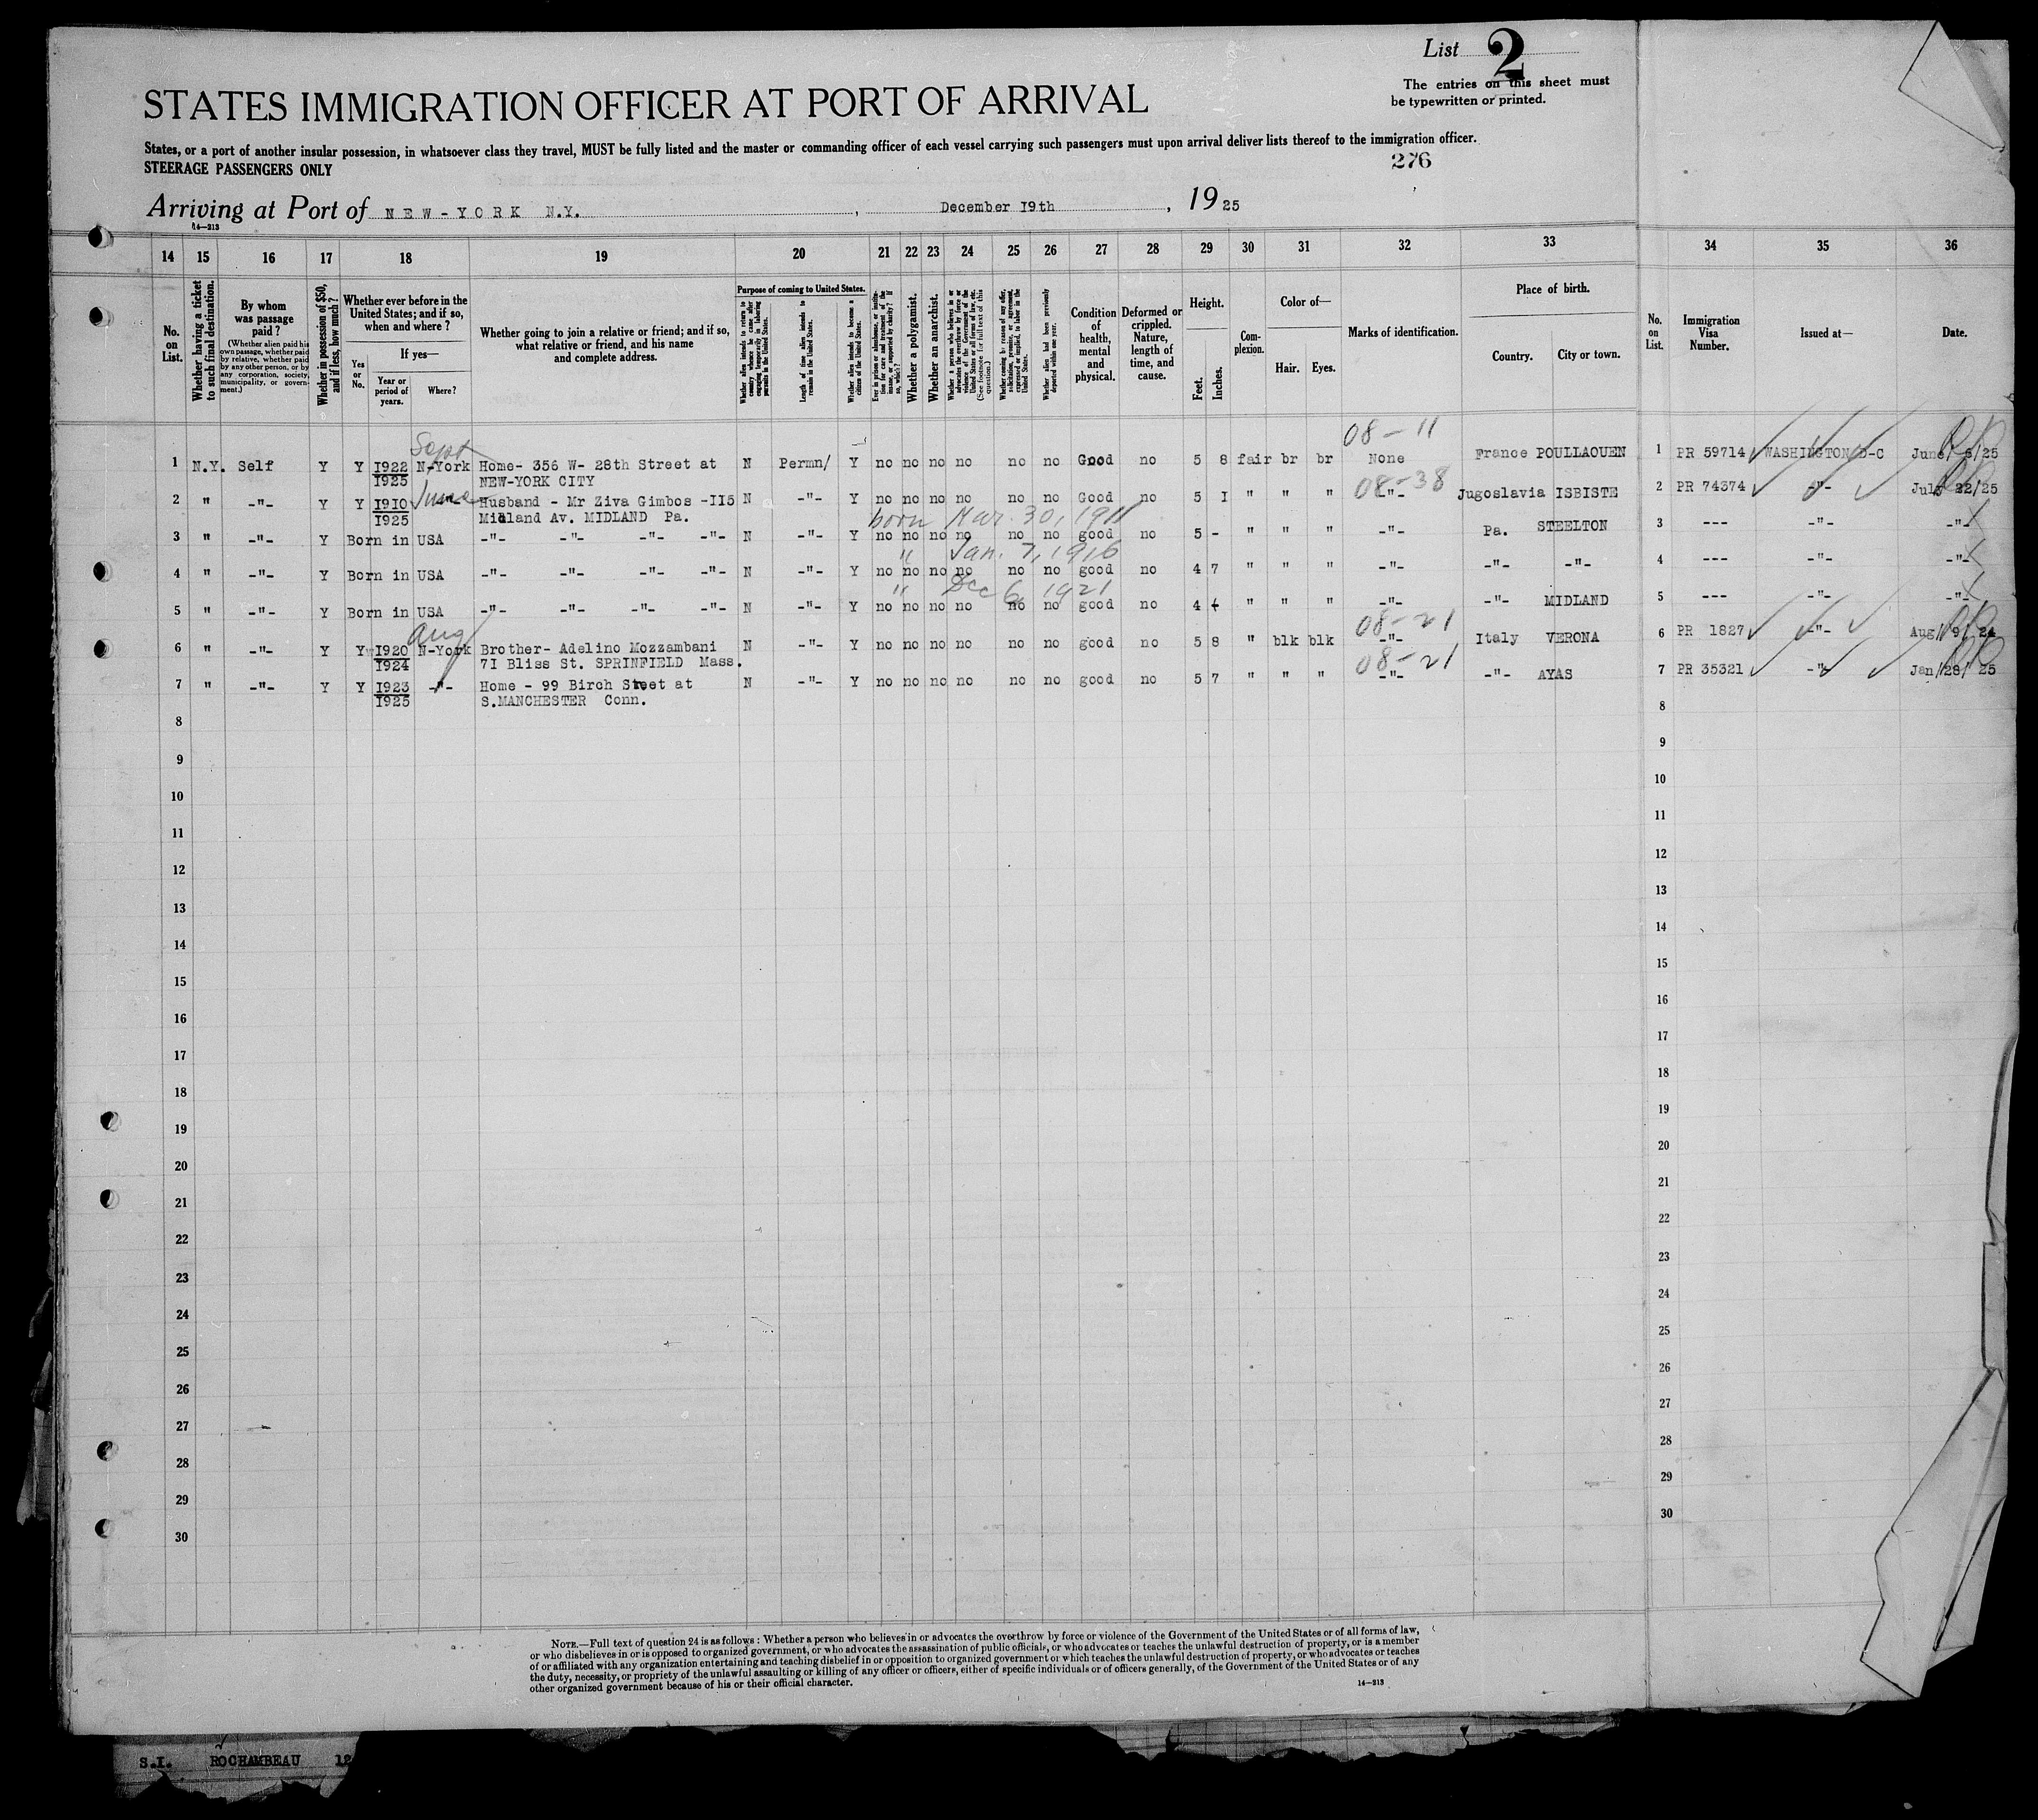 List 2
The entries on this sheet must
be typewritten or printed.
STATES IMMIGRATION OFFICER AT PORT OF ARRIVAL
States, or a port of another insular possession, in whatsoever class they travel, MUST be fully listed and the master or commanding officer of each vessel carrying such passengers must upon arrival deliver lists thereof to the immigration officer.
STEERAGE PASSENGERS ONLY
276
Arriving at Port of NEW-YORK N.Y., December I9th, 1925
14—213
14 15 16 17 18 19 20 21 22 23 24 25 26 27 28 29 30 31 32 33 34 35 36
No. on List.
Whether having a ticket to such final destination.
By whom was passage paid?
(Whether alien paid his own passage, whether paid by relative, whether paid by any other person, or by any corporation, society, municipality, or government.)
Whether in possession of $50, and if less, how much?
Whether ever before in the United States; and if so, when and where?
Yes or No.
If yes—
Year or period of years.
Where?
Whether going to join a relative or friend; and if so, what relative or friend, and his name and complete address.
Purpose of coming to United States.
Whether alien intends to return to country whence he came after engaging temporarily in laboring pursuits in the United States.
Length of time alien intends to remain in the United States.
Whether alien intends to become a citizen of the United States.
Ever in prison or almshouse, or institution for care and treatment of the insane, or supported by charity? If so, which?
Whether a polygamist.
Whether an anarchist.
Whether a person who believes in or advocates the overthrow by force or violence of the Government of the United States or all forms of law, etc. (See footnote for full text of this question.)
Whether coming by reason of any offer, solicitation, promise, or agreement, expressed or implied, to labor in the United States.
Whether alien had been previously deported within one year.
Condition of health, mental and physical.
Deformed or crippled. Nature, length of time, and cause.
Height.
Feet.
Inches.
Complexion.
Color of—
Hair.
Eyes.
Marks of identification.
Place of birth.
Country.
City or town.
No. on List.
Immigration Visa Number.
Issued at—
Date.
Sept
08-11
1 N.Y. Self Y Y I922 N-York Home- 356 W- 28th Street at N Permn/ Y no no no no no no Good no 5 8 fair br br None France POULLAOUEN 1 PR 59714 WASHINGTON D-C June/ 6/25
I925 NEW-YORK CITY
June
08-38
2 " -"- Y Y I9I0 Husband - Mr Ziva Gimbos -II5 N -"- Y no no no no no no Good no 5 I " " " -"- Jugoslavia ISBISTE 2 PR 74374 -"- July 22/25
I925 Midland Av. MIDLAND Pa.
born Mar. 30, 1911
3 " -"- Y Born in USA -"- -"- -"- -"- N -"- Y no no no no no no good no 5 - " " " -"- Pa. STEELTON 3 --- -"- -"-
" Jan. 7, 1916
4 " -"- Y Born in USA -"- -"- -"- -"- N -"- Y no no no no no no good no 4 7 " " " -"- -"- -"- 4 --- -"- -"-
" Dec 6, 1921
5 " -"- Y Born in USA -"- -"- -"- -"- N -"- Y no no no no no no good no 4 " " " -"- -"- MIDLAND 5 --- -"- -"-
Aug
08-21
6 " -"- Y Y I920 N-York Brother- Adelino Mozzambani N -"- Y no no no no no no good no 5 8 " blk blk -"- Italy VERONA 6 PR 1827 -"- Aug/ 9/ 24
I924 7I Bliss St. SPRINFIELD Mass.
08-21
7 " -"- Y Y I923 -"- Home - 99 Birch Street at N -"- Y no no no no no no good no 5 7 " " " -"- -"- AYAS 7 PR 35321 -"- Jan/28/ 25
I925 S.MANCHESTER Conn.
8 8
9 9
10 10
11 11
12 12
13 13
14 14
15 15
16 16
17 17
18 18
19 19
20 20
21 21
22 22
23 23
24 24
25 25
26 26
27 27
28 28
29 29
30 30
NOTE.—Full text of question 24 is as follows: Whether a person who believes in or advocates the overthrow by force or violence of the Government of the United States or of all forms of law,
or who disbelieves in or is opposed to organized government, or who advocates the assassination of public officials, or who advocates or teaches the unlawful destruction of property, or is a member
of or affiliated with any organization entertaining and teaching disbelief in or opposition to organized government or which teaches the unlawful destruction of property, or who advocates or teaches
the duty, necessity, or propriety of the unlawful assaulting or killing of any officer or officers, either of specific individuals or of officers generally, of the Government of the United States or of any
other organized government because of his or their official character.
14—213
S.I. ROCHAMBEAU 12